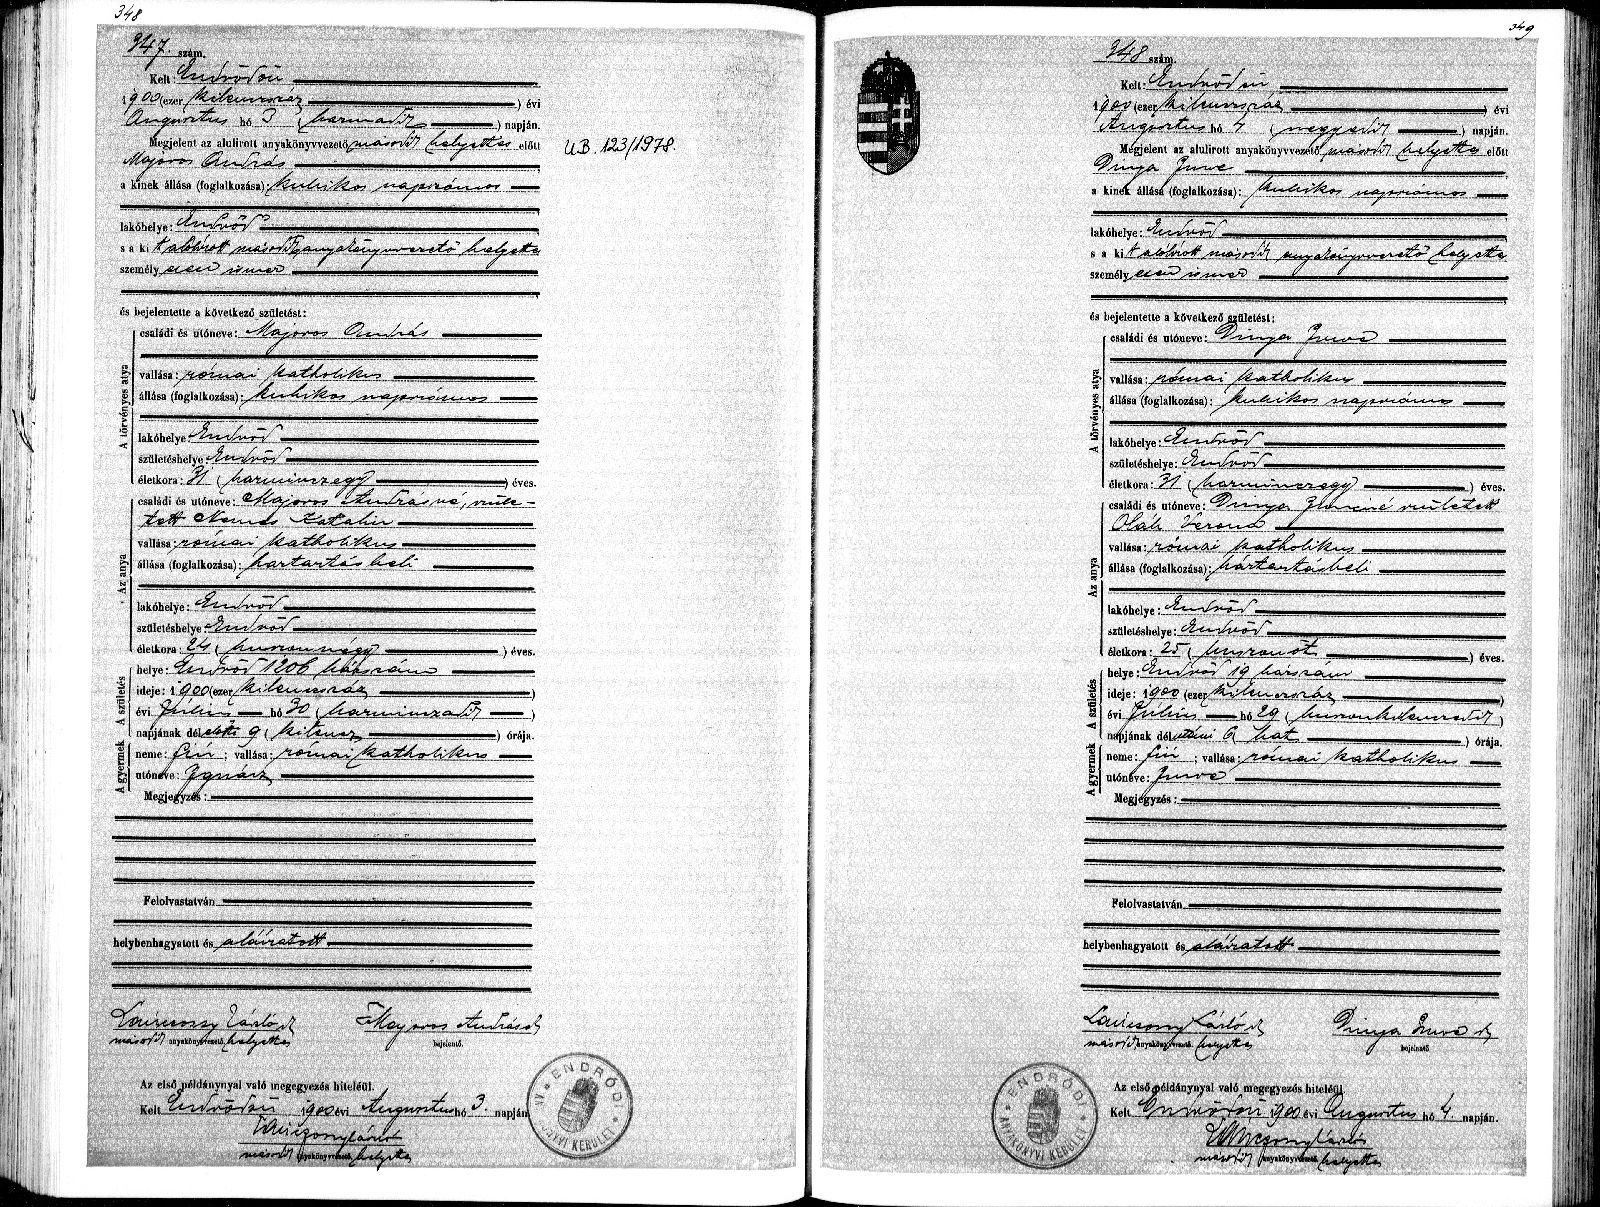 348
347. szám.
Kelt: Endrődön
1900 (ezer kilenczszáz) évi
Augusztus hó 3 (harmadik) napján.
Megjelent az alulirott anyakönyvvezető második helyettes előtt
Majoros András
a kinek állása (foglalkozása): kubikos napszámos
lakóhelye: Endrőd
s a kit alólírott második anyakönyvvezető helyettes
személyesen ismer
és bejelentette a következő születést:
A törvényes atya
családi és utóneve: Majoros András
vallása: római katholikus
állása (foglalkozása): kubikos napszámos
lakóhelye: Endrőd
születéshelye: Endrőd
életkora: 31 (harminczegy) éves.
Az anya
családi és utóneve: Majoros Andrásné, szüle-
tett Nemes Katalin
vallása: római katholikus
állása (foglalkozása): háztartásbeli
lakóhelye: Endrőd
születéshelye: Endrőd
életkora: 24 (huszonnégy) éves.
A születés
helye: Endrőd 1206 házszám
ideje: 1900 (ezer kilenczszáz)
évi Július hó 30 (harminczadik)
napjának délelőtti 9 (kilencz) órája.
A gyermek
neme: fiú; vallása: római katholikus
utóneve: Ignácz
Megjegyzés:
Felolvastatván
helybenhagyatott és aláíratott
másod anyakönyvvezető helyettes
Majoros András
bejelentő.
Az első példánynyal való megegyezés hiteléül.
Kelt Endrődön 1900 évi Augusztus hó 3. napján
másod anyakönyvvezető helyettes
ENDRŐDI ANYAKÖNYVI KERÜLET
U.B. 123/1978.
349
348 szám.
Kelt: Endrődön
1900 (ezer kilenczszáz) évi
Augusztus hó 4 (negyedik) napján.
Megjelent az alulirott anyakönyvvezető második helyettes előtt
Dinya Imre
a kinek állása (foglalkozása): kubikos napszámos
lakóhelye: Endrőd
s a kit alólírott második anyakönyvvezető helyettes
személyesen ismer
és bejelentette a következő születést:
A törvényes atya
családi és utóneve: Dinya Imre
vallása: római katholikus
állása (foglalkozása): kubikos napszámos
lakóhelye: Endrőd
születéshelye: Endrőd
életkora: 31 (harminczegy) éves.
Az anya
családi és utóneve: Dinya Imréné született
Oláh Verona
vallása: római katholikus
állása (foglalkozása): háztartásbeli
lakóhelye: Endrőd
születéshelye: Endrőd
életkora: 25 (huszonöt) éves.
A születés
helye: Endrőd 19 házszám
ideje: 1900 (ezer kilenczszáz)
évi Július hó 29 (huszonkilenczedik)
napjának délutáni 6 (hat) órája.
A gyermek
neme: fiú; vallása: római katholikus
utóneve: Imre
Megjegyzés:
Felolvastatván
helybenhagyatott és aláíratott
másod anyakönyvvezető helyettes
Dinya Imre
bejelentő
Az első példánynyal való megegyezés hiteléül
Kelt Endrődön 1900 évi Augusztus hó 4. napján.
másod anyakönyvvezető helyettes
ENDRŐDI ANYAKÖNYVI KERÜLET